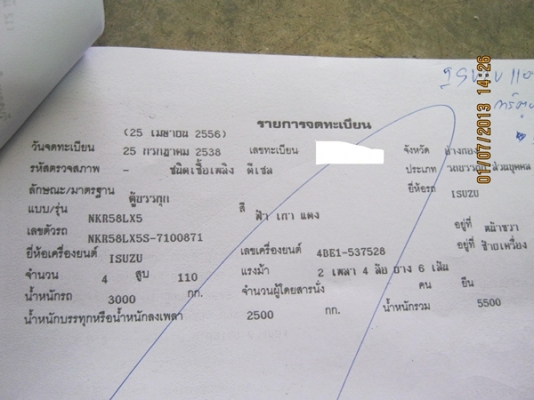 01/07/2013 14:26
รายการจดทะเบียน
(25 เมษายน 2556)
วันจดทะเบียน 25 กรกฎาคม 2538 เลขทะเบียน จังหวัด อ่างทอง
รหัสตรวจสภาพ - ชนิดเชื้อเพลิง ดีเซล ประเภท
ลักษณะ/มาตรฐาน ตู้บรรทุก ยี่ห้อรถ ISUZU
แบบ/รุ่น NKR58LX5 สี ฟ้า เทา แดง
เลขตัวรถ NKR58LX5S-7100871 อยู่ที่ หน้าขวา
ยี่ห้อเครื่องยนต์ ISUZU เลขเครื่องยนต์ 4BE1-537528 อยู่ที่ ซ้ายเครื่อง
จำนวน 4 สูบ 110 แรงม้า 2 เพลา 4 ล้อ ยาง 6 เส้น
น้ำหนักรถ 3000 กก. จำนวนผู้โดยสารนั่ง คน ยืน
น้ำหนักบรรทุกหรือน้ำหนักลงเพลา 2500 กก. น้ำหนักรวม 5500